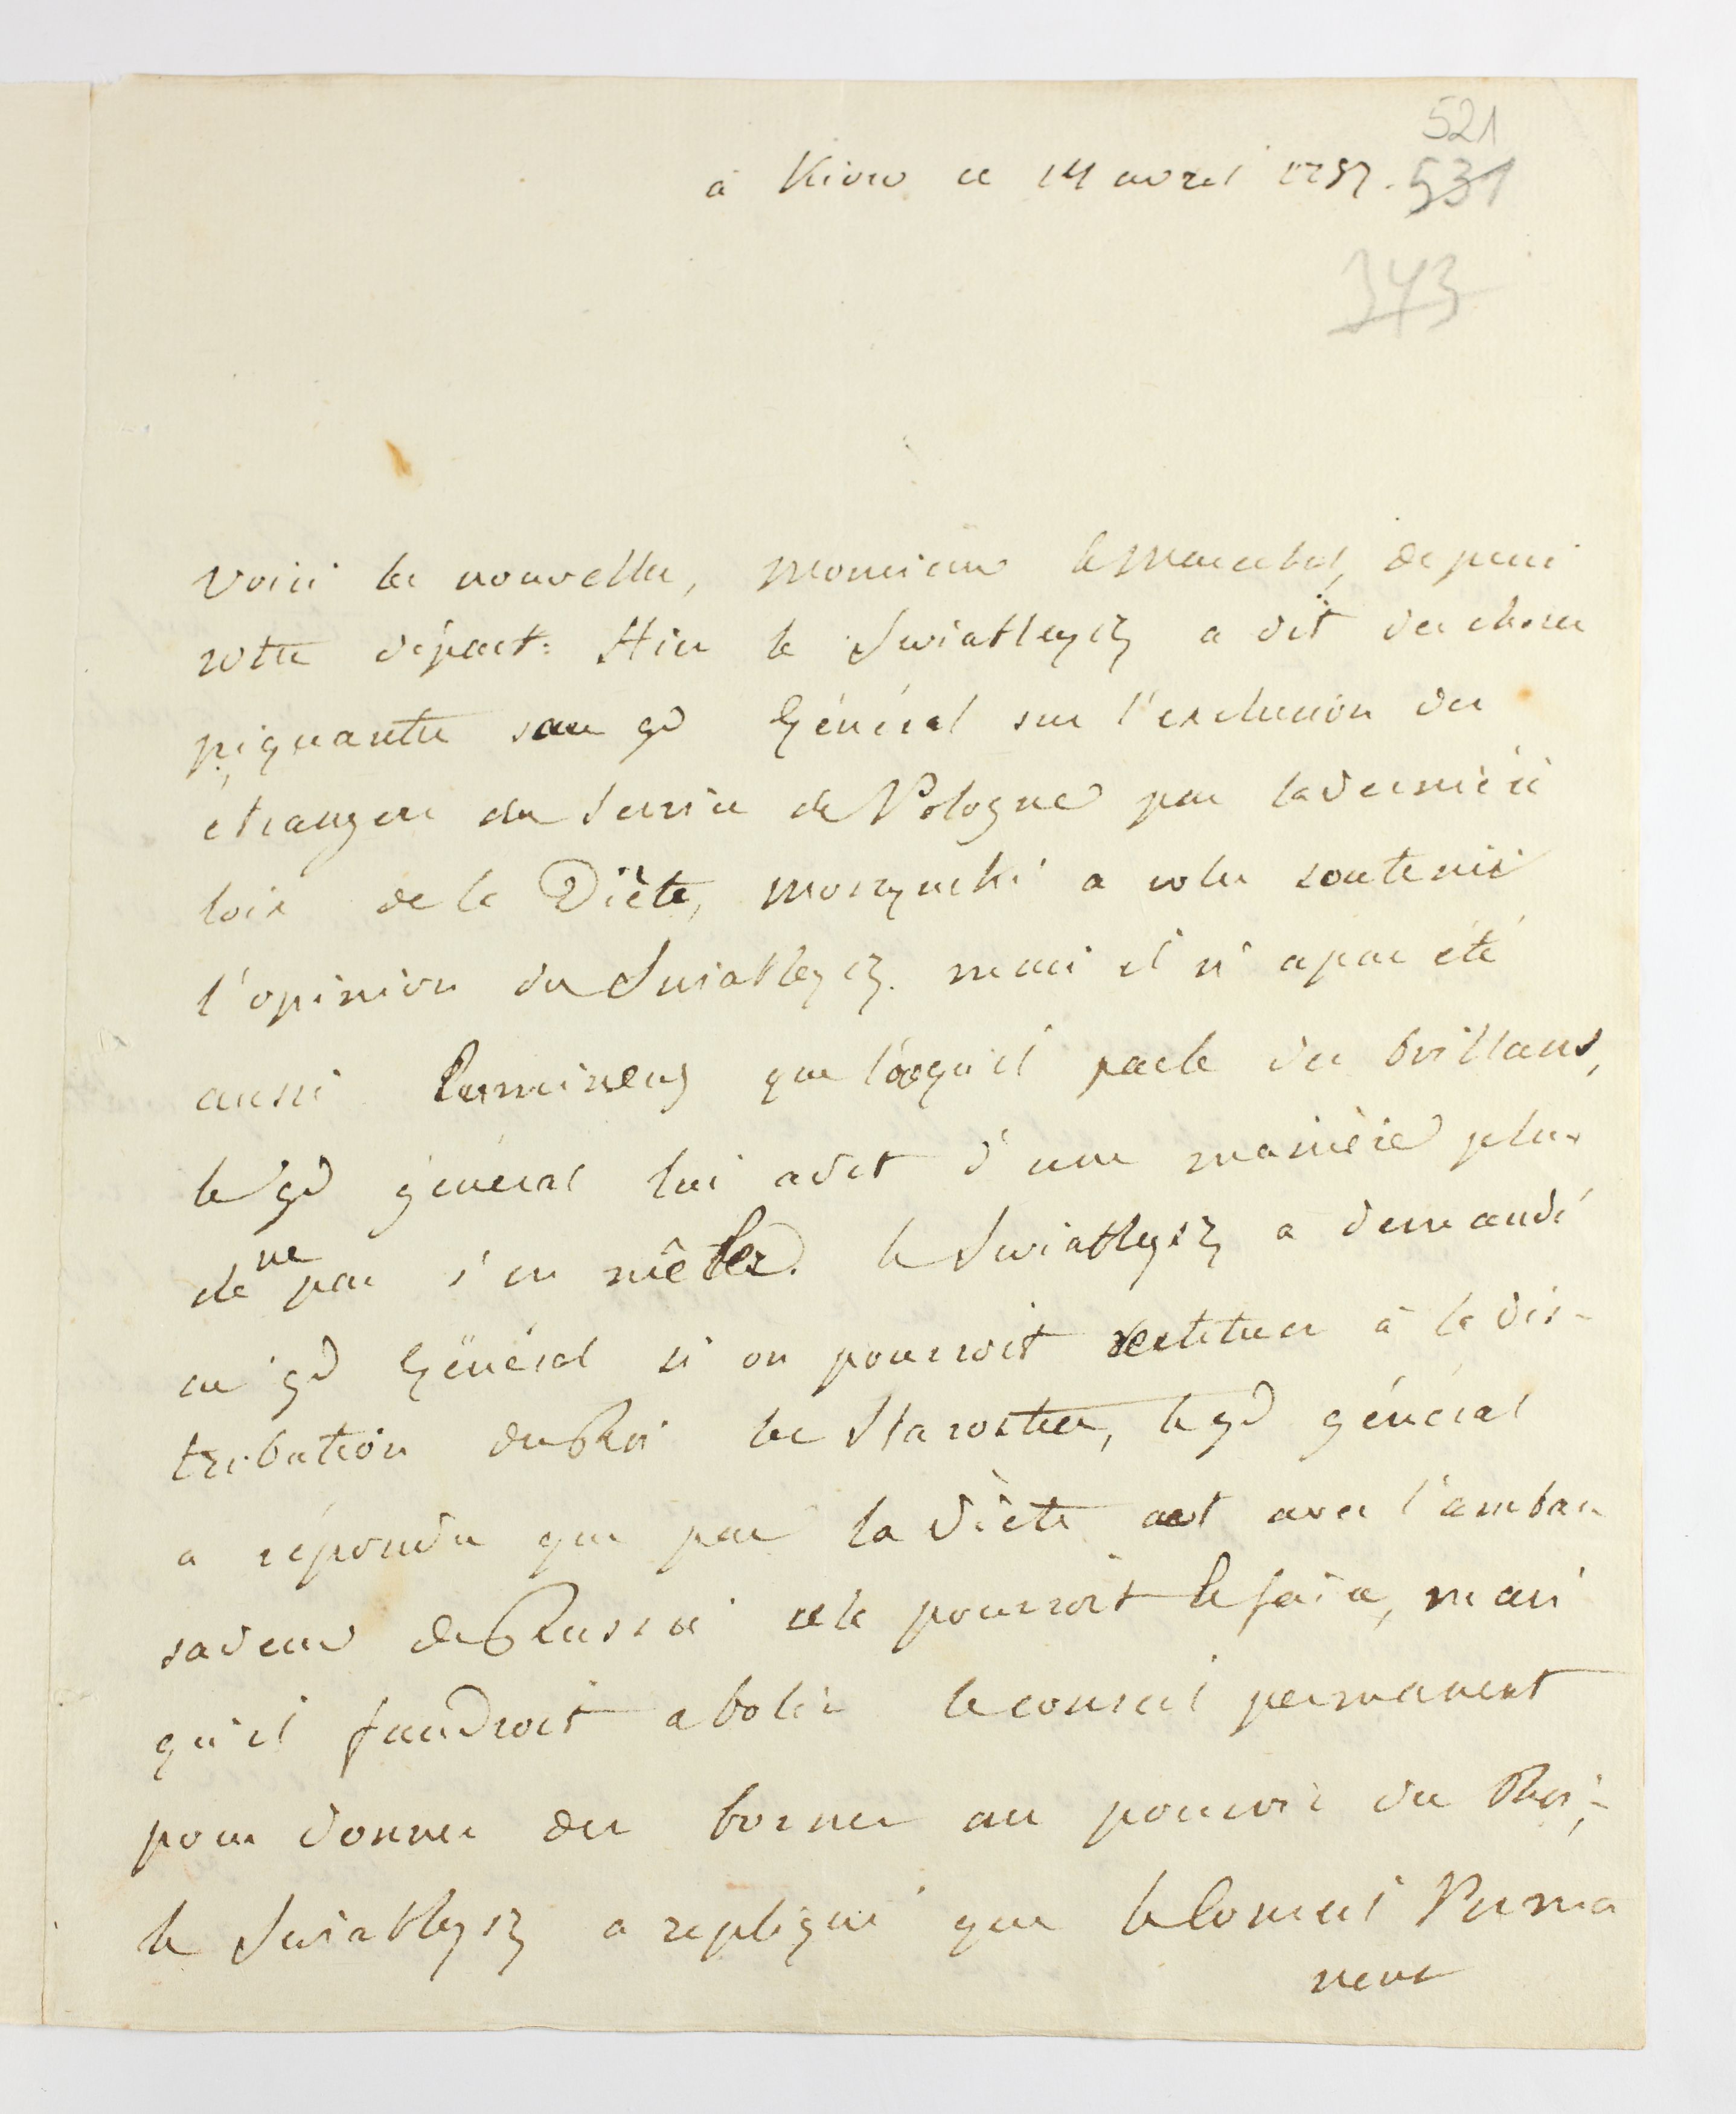 521
à Kiow ce 14 avril 1787. 531
343
Voici les nouvelles, Monsieur le Marechal, depuis
votre départ: Hier le Swiatleyszy a dit des choses
piquantes au gd Général sur l'exclusion des
étrangers du service de Pologne par la derniere
loix de la Diète, Moszynski a volu soutenir
l'opinion du Swiatleyszy. mais il n'a pas été
aussi lumineux que lorsqu'il parle des brillans,
le gd géneral lui a dit d'une manière plus
de ne pas s'en mêler. le Swiatleyszy a demandé
au gd Général si on pourroit restituer à la dis-
tribution du Roi les Starosties, le gd général
a répondu que par la diète et avec l'ambas
sadeur de Russie cela pourroit le faire, mais
qu'il faudroit abolir le conseil permanent
pour donner des bornes au pouvoir du Roi,-
le Swiatleyszy a repliqué que le Conseil Perma
nent